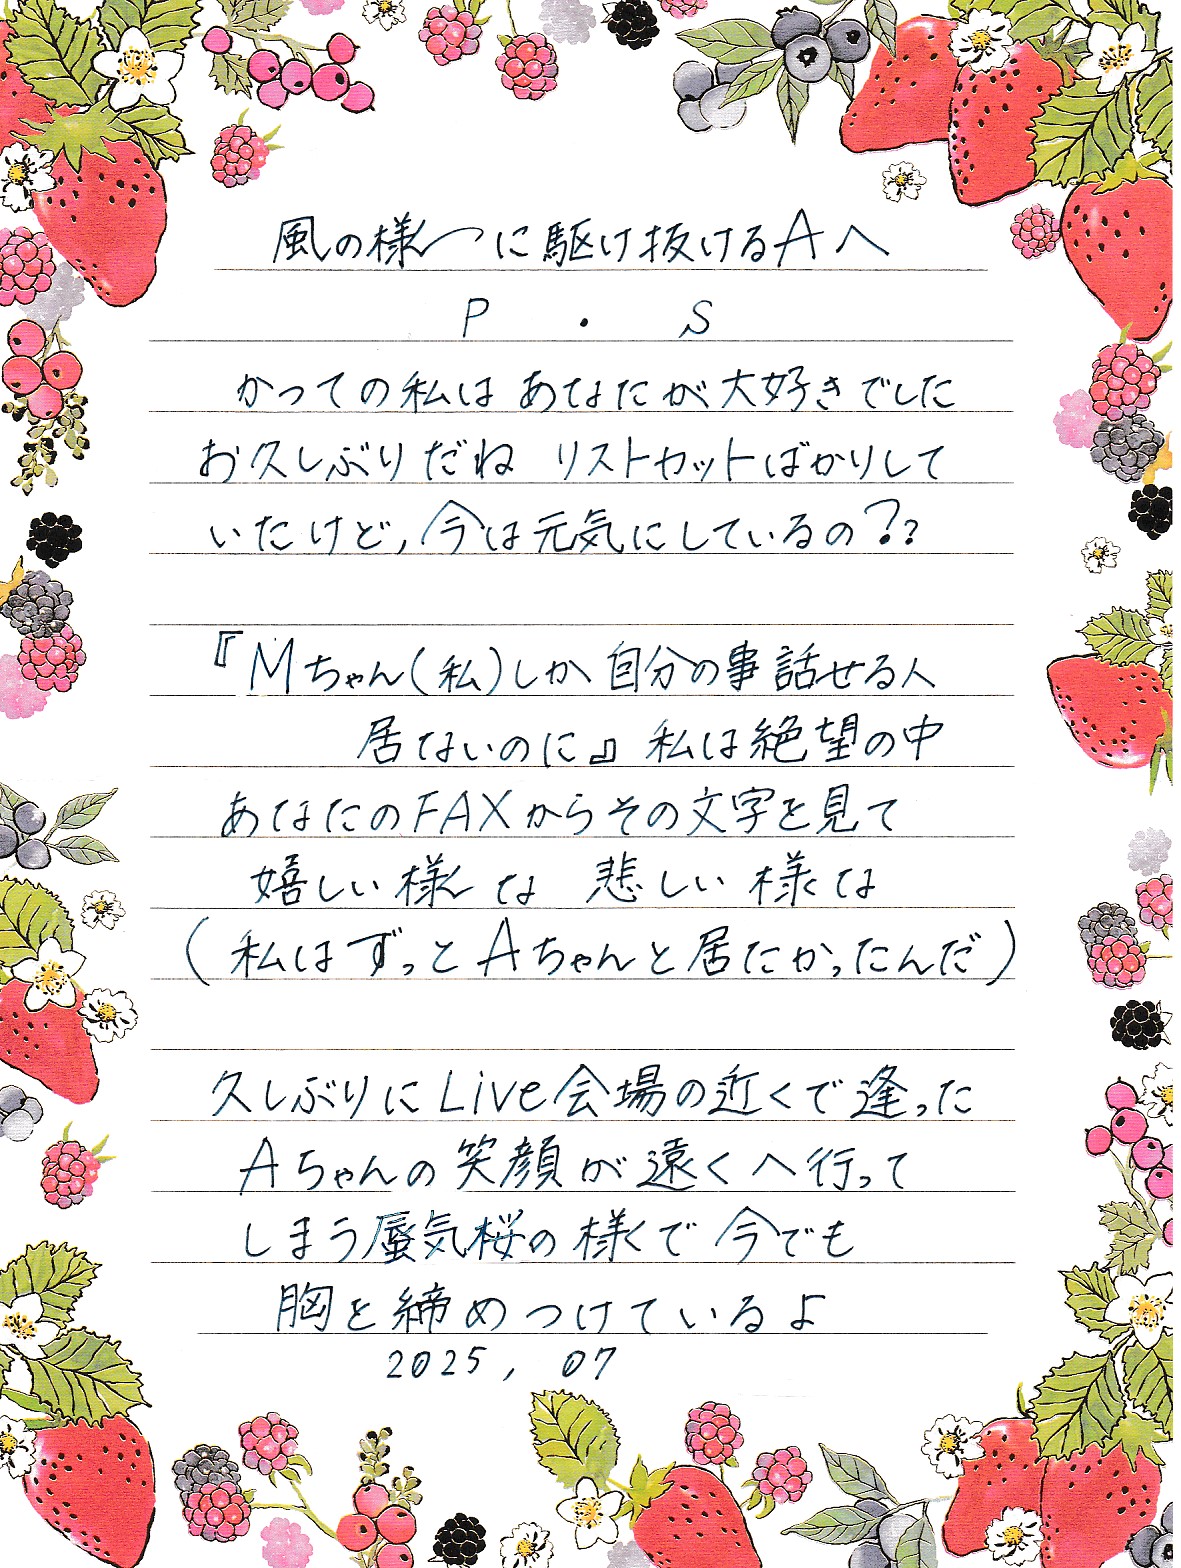 風の様に駆け抜けるAへ
P.S
かつての私はあなたが大好きでした
お久しぶりだね リストカットばかりして
いたけど,今は元気にしているの???
『Mちゃん(私)しか自分の事話せる人
居ないのに』私は絶望の中
あなたのFAXからその文字を見て
嬉しい様な 悲しい様な
(私はずっとAちゃんと居たかったんだ)
久しぶりにLive会場の近くで逢った
Aちゃんの笑顔が遠くへ行って
しまう蜃気桜の様で今でも
胸を締めつけているよ
2025, 07